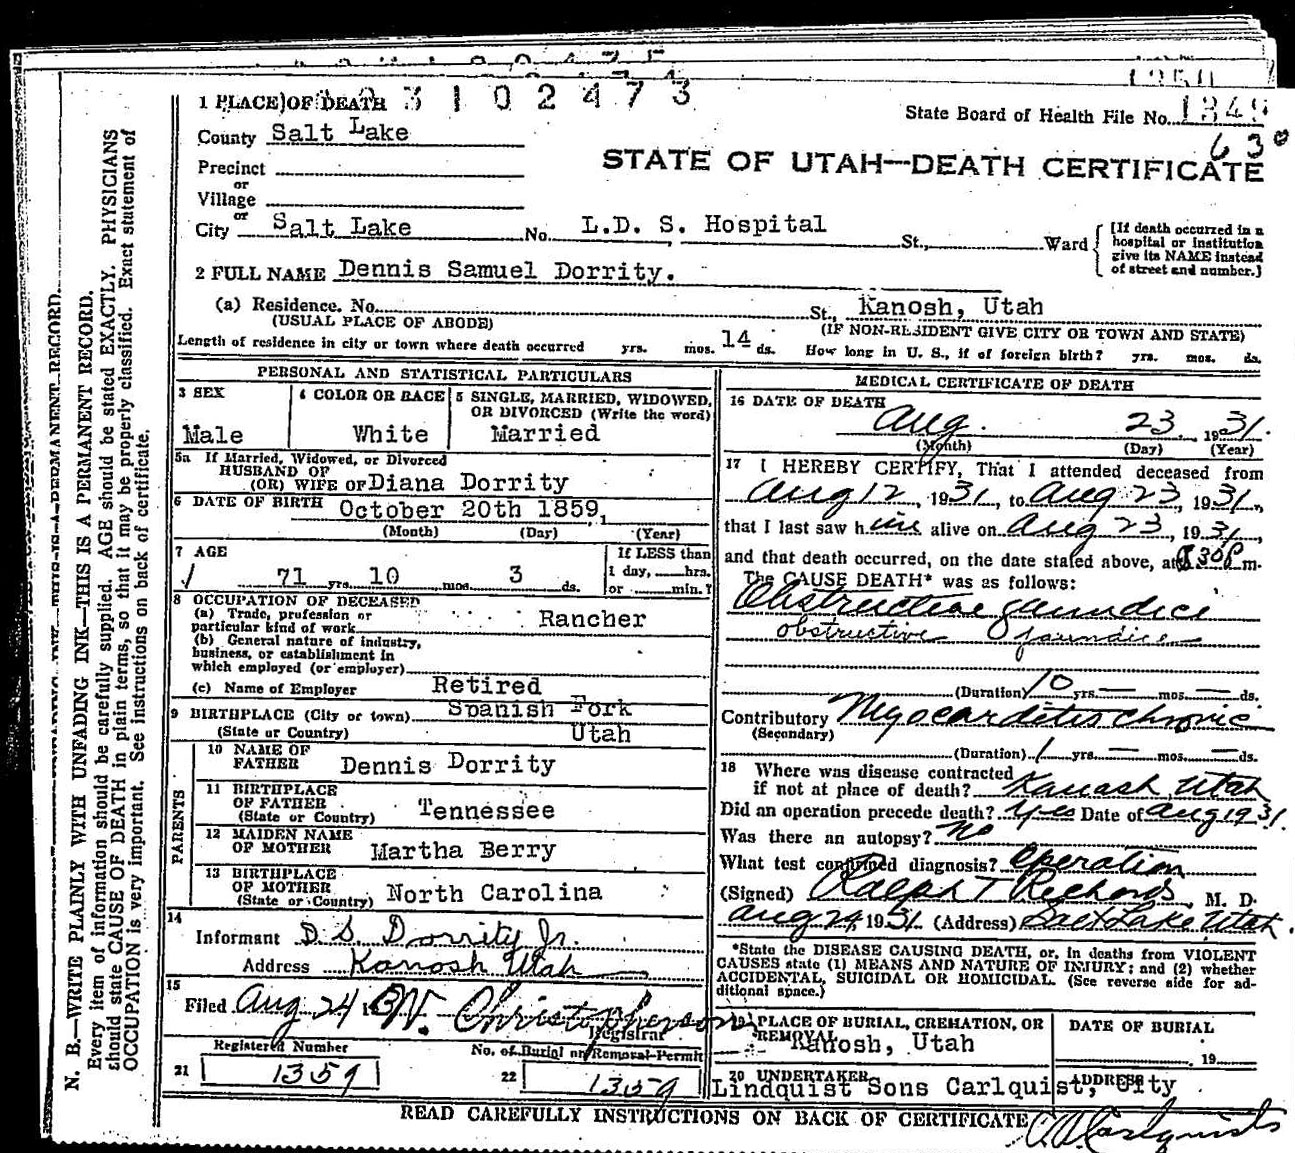 1 PLACE OF DEATH 3 1 0 2 4 7 3
State Board of Health File No. 1849
630
County Salt Lake
STATE OF UTAH—DEATH CERTIFICATE
Precinct
or
Village
or
City Salt Lake No. L.D. S. Hospital St., Ward
[If death occurred in a
hospital or institution
give its NAME instead
of street and number.]
2 FULL NAME Dennis Samuel Dorrity.
(a) Residence. No. St., Kanosh, Utah
(USUAL PLACE OF ABODE) (IF NON-RESIDENT GIVE CITY OR TOWN AND STATE)
Length of residence in city or town where death occurred yrs. mos. 14 ds. How long in U. S., if of foreign birth? yrs. mos. ds.
PERSONAL AND STATISTICAL PARTICULARS
3 SEX
Male
4 COLOR OR RACE
White
5 SINGLE, MARRIED, WIDOWED,
OR DIVORCED (Write the word)
Married
5a If Married, Widowed, or Divorced
HUSBAND OF
(OR) WIFE OF Diana Dorrity
6 DATE OF BIRTH October 20th 1859,
(Month) (Day) (Year)
7 AGE
71 yrs. 10 mos. 3 ds.
If LESS than
1 day, hrs.
or min.?
8 OCCUPATION OF DECEASED
(a) Trade, profession or
particular kind of work Rancher
(b) General nature of industry,
business, or establishment in
which employed (or employer)
(c) Name of Employer Retired
9 BIRTHPLACE (City or town) Spanish Fork
(State or Country) Utah
PARENTS
10 NAME OF
FATHER Dennis Dorrity
11 BIRTHPLACE
OF FATHER
(State or Country) Tennessee
12 MAIDEN NAME
OF MOTHER Martha Berry
13 BIRTHPLACE
OF MOTHER
(State or Country) North Carolina
14
Informant D. S. Dorrity Jr.
Address Kanosh Utah
15
Filed Aug 24 W. Christopherson
Registrar
Registered Number
21 1359
No. of Burial or Removal Permit
22 1359
MEDICAL CERTIFICATE OF DEATH
16 DATE OF DEATH
Aug. 23 1931.
(Month) (Day) (Year)
17 I HEREBY CERTIFY, That I attended deceased from
Aug 12, 1931, to Aug 23, 1931,
that I last saw him alive on Aug 23, 1931,
and that death occurred, on the date stated above, at 8 30 P m.
The CAUSE DEATH* was as follows:
Obstructive jaundice
obstructive jaundice
(Duration) 10 yrs. — mos. — ds.
Contributory Myocarditis chronic
(Secondary)
(Duration) 1 yrs. — mos. — ds.
18 Where was disease contracted
if not at place of death? Kanosh, Utah
Did an operation precede death? yes Date of Aug 19 31.
Was there an autopsy? No
What test confirmed diagnosis? Operation
(Signed) Ralph T Richards, M. D.
Aug 24, 1931. (Address) Salt Lake Utah.
*State the DISEASE CAUSING DEATH, or, in deaths from VIOLENT
CAUSES state (1) MEANS AND NATURE OF INJURY; and (2) whether
ACCIDENTAL, SUICIDAL OR HOMICIDAL. (See reverse side for ad-
ditional space.)
19 PLACE OF BURIAL, CREMATION, OR
REMOVAL
Kanosh, Utah
DATE OF BURIAL
19
20 UNDERTAKER ADDRESS
Lindquist Sons Carlquist, City
READ CAREFULLY INSTRUCTIONS ON BACK OF CERTIFICATE
N. B.—WRITE PLAINLY WITH UNFADING INK—THIS IS A PERMANENT RECORD.
Every item of information should be carefully supplied. AGE should be stated EXACTLY. PHYSICIANS
should state CAUSE OF DEATH in plain terms, so that it may be properly classified. Exact statement of
OCCUPATION is very important. See instructions on back of certificate.